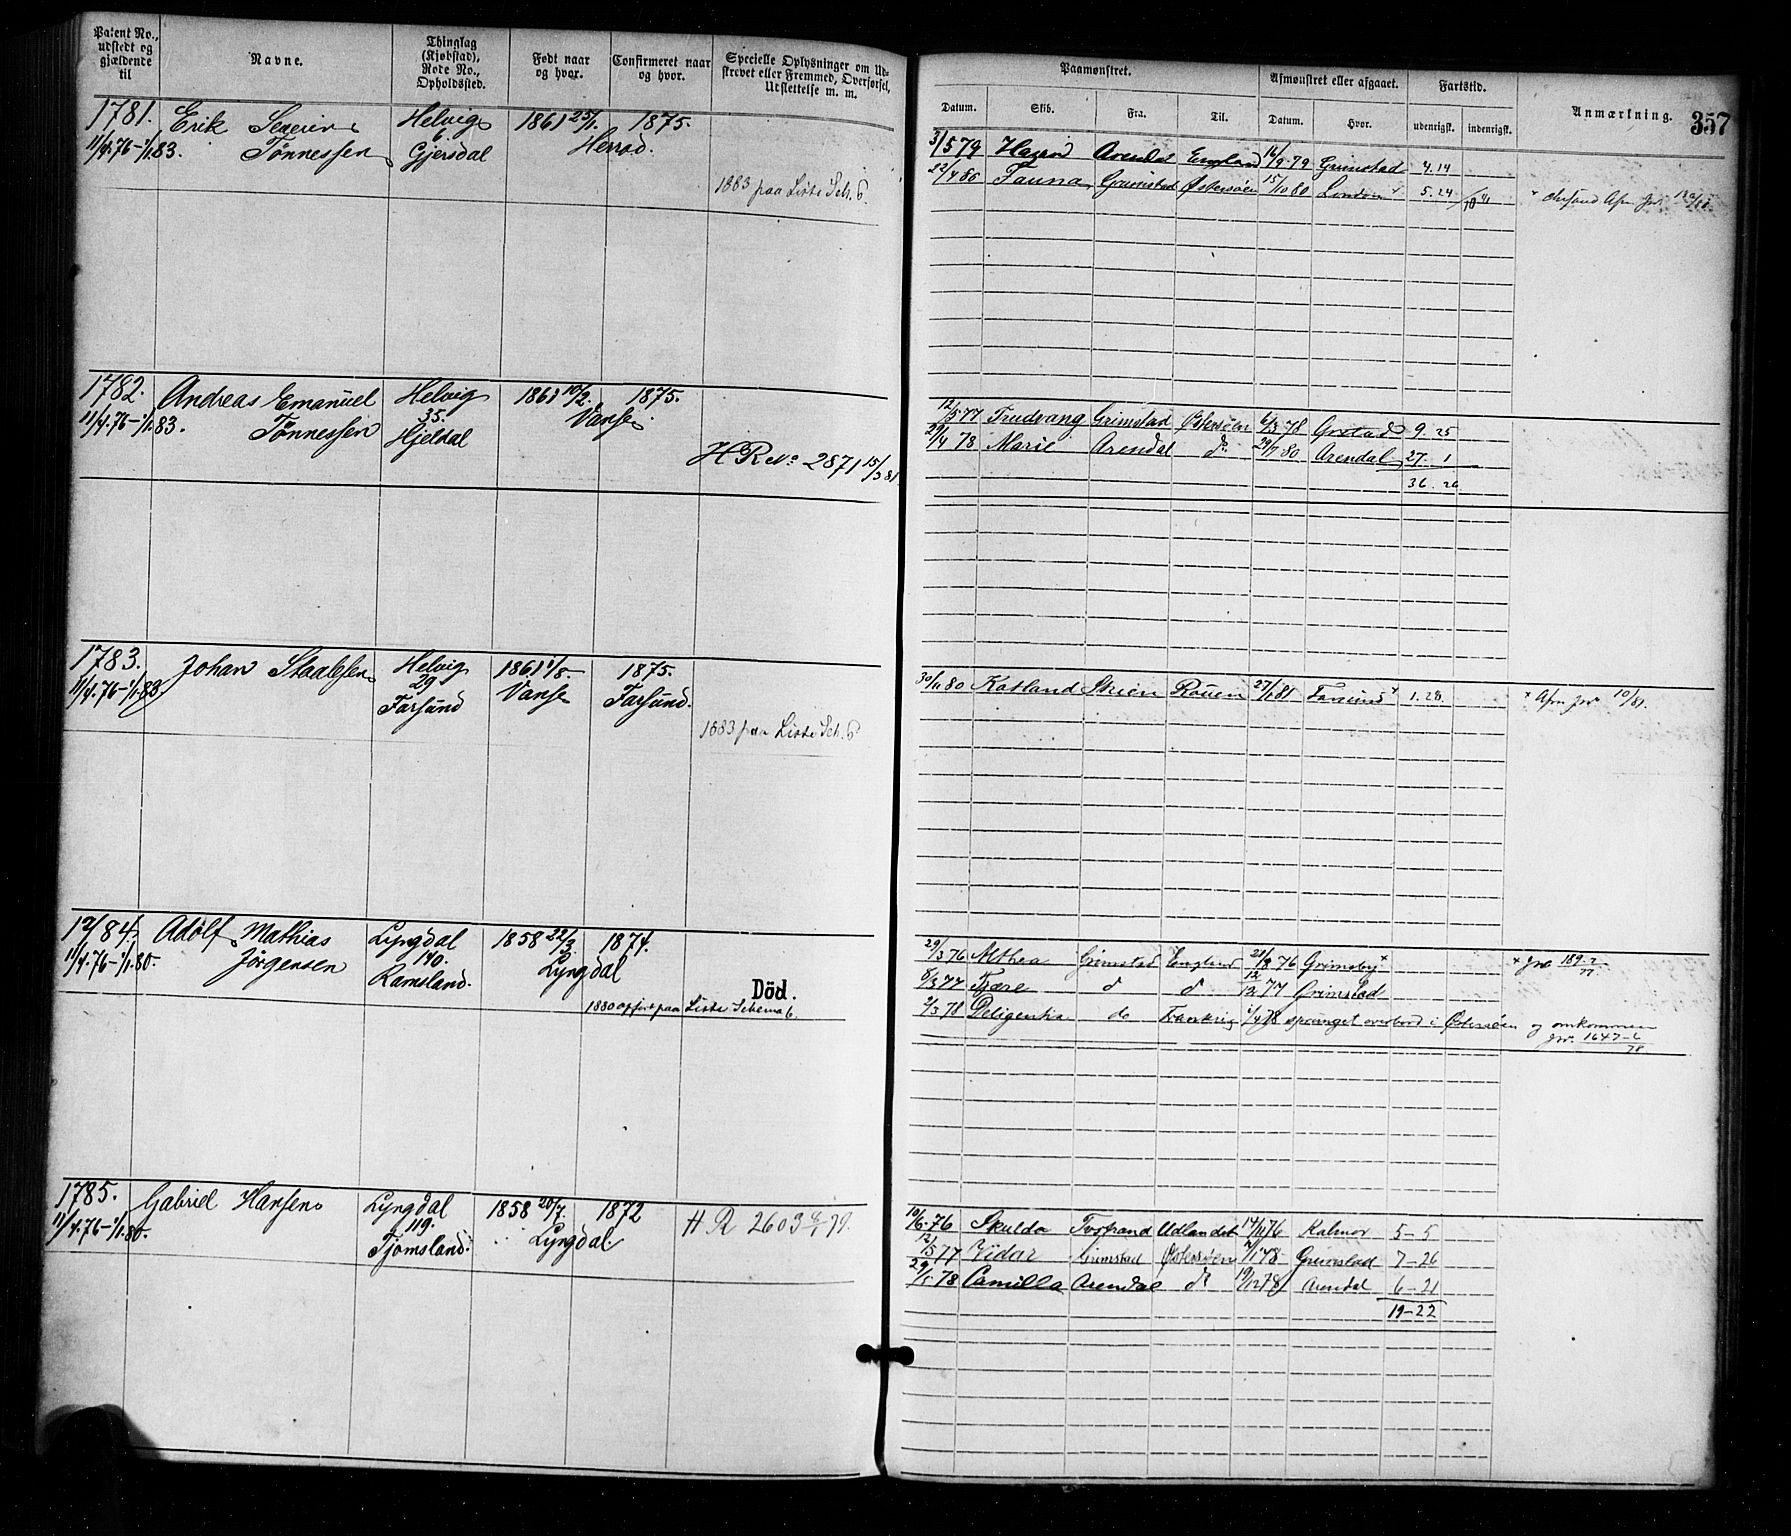 Patent No., udstedt og gjældende til
Navne.
Thinglag (Kjøbstad), Rode No., Opholdssted.
Født naar og hvor.
Confirmeret naar og hvor.
Specielle Oplysninger om Udskrevet eller Fremmed, Overførsel, Udslettelse m. m.
1781. Erik Severin Helvig 1861 25/1. 1875.
11/4.76-1/1.83. Tønnessen 6. Gjersdal Herrad.
1883 paa Liste Sch. 6
1782. Andreas Emanuel Helvig 1861 10/2. 1875.
11/4.76-1/1.83. Tønnessen 35. Hjeldal Vanse
H R No 2871 15/3 81
1783. Johan Staalesen Helvig 1861 1/8. 1875.
11/4.76-1/1.83 29 Farsund Vanse Farsund.
1883 paa Liste Sch. 6
1784. Adolf Mathias Lyngdal 1858 22/3. 1874.
11/4.76-1/1.80. Jørgensen 140. Ramsland. Lyngdal
Død.
1880 opført paa Liste Schema 6.
1785. Gabriel Hansen Lyngdal 1858 20/7. 1872 H R 2603 79.
11/4.76-1/1.80. 119. Tjomsland. Lyngdal
Paamønstret. Afmønstret eller afgaaet. Fartstid. Anmærkning. 357
Datum. Skib. Fra. Til. Datum. Hvor. udenrigsk. indenrigsk.
3/5 79 Arendal England 9.79 Grimstad 4.14
22/4 80 Fauna Grimstad Østersøen 15/10 80 London 5.24
12/5 77 Trudvang Grimstad Østersøen 78 Grstad 9. 25
29/4 78 Marie Arendal do 80 Arendal 27. 1
36. 26
30/11 80 Katland Skien Rouen 27/1 81 Farsund x 1.28. x Afm Jr 10/81.
29/3 76 Althea Grimstad England 21/8 76 Grimsby x x Jr 189-2/77
8/3 77 Fjære d d 12/12 77 Grimstad
2/3 78 Deligentia do Frankrig 1/4 78 sprunget overbord i Østersøen og omkommen
Jr. 1647-6/78
10/6.76 Skulda Tvestrand Udlandet 14/11 76 Kalmar 5-5
12/5 77 Vidar Grimstad Østersøen 78 Grimstad 7-26
78 Camilla Arendal do 19/12 78 Arendal 6-21
19-22